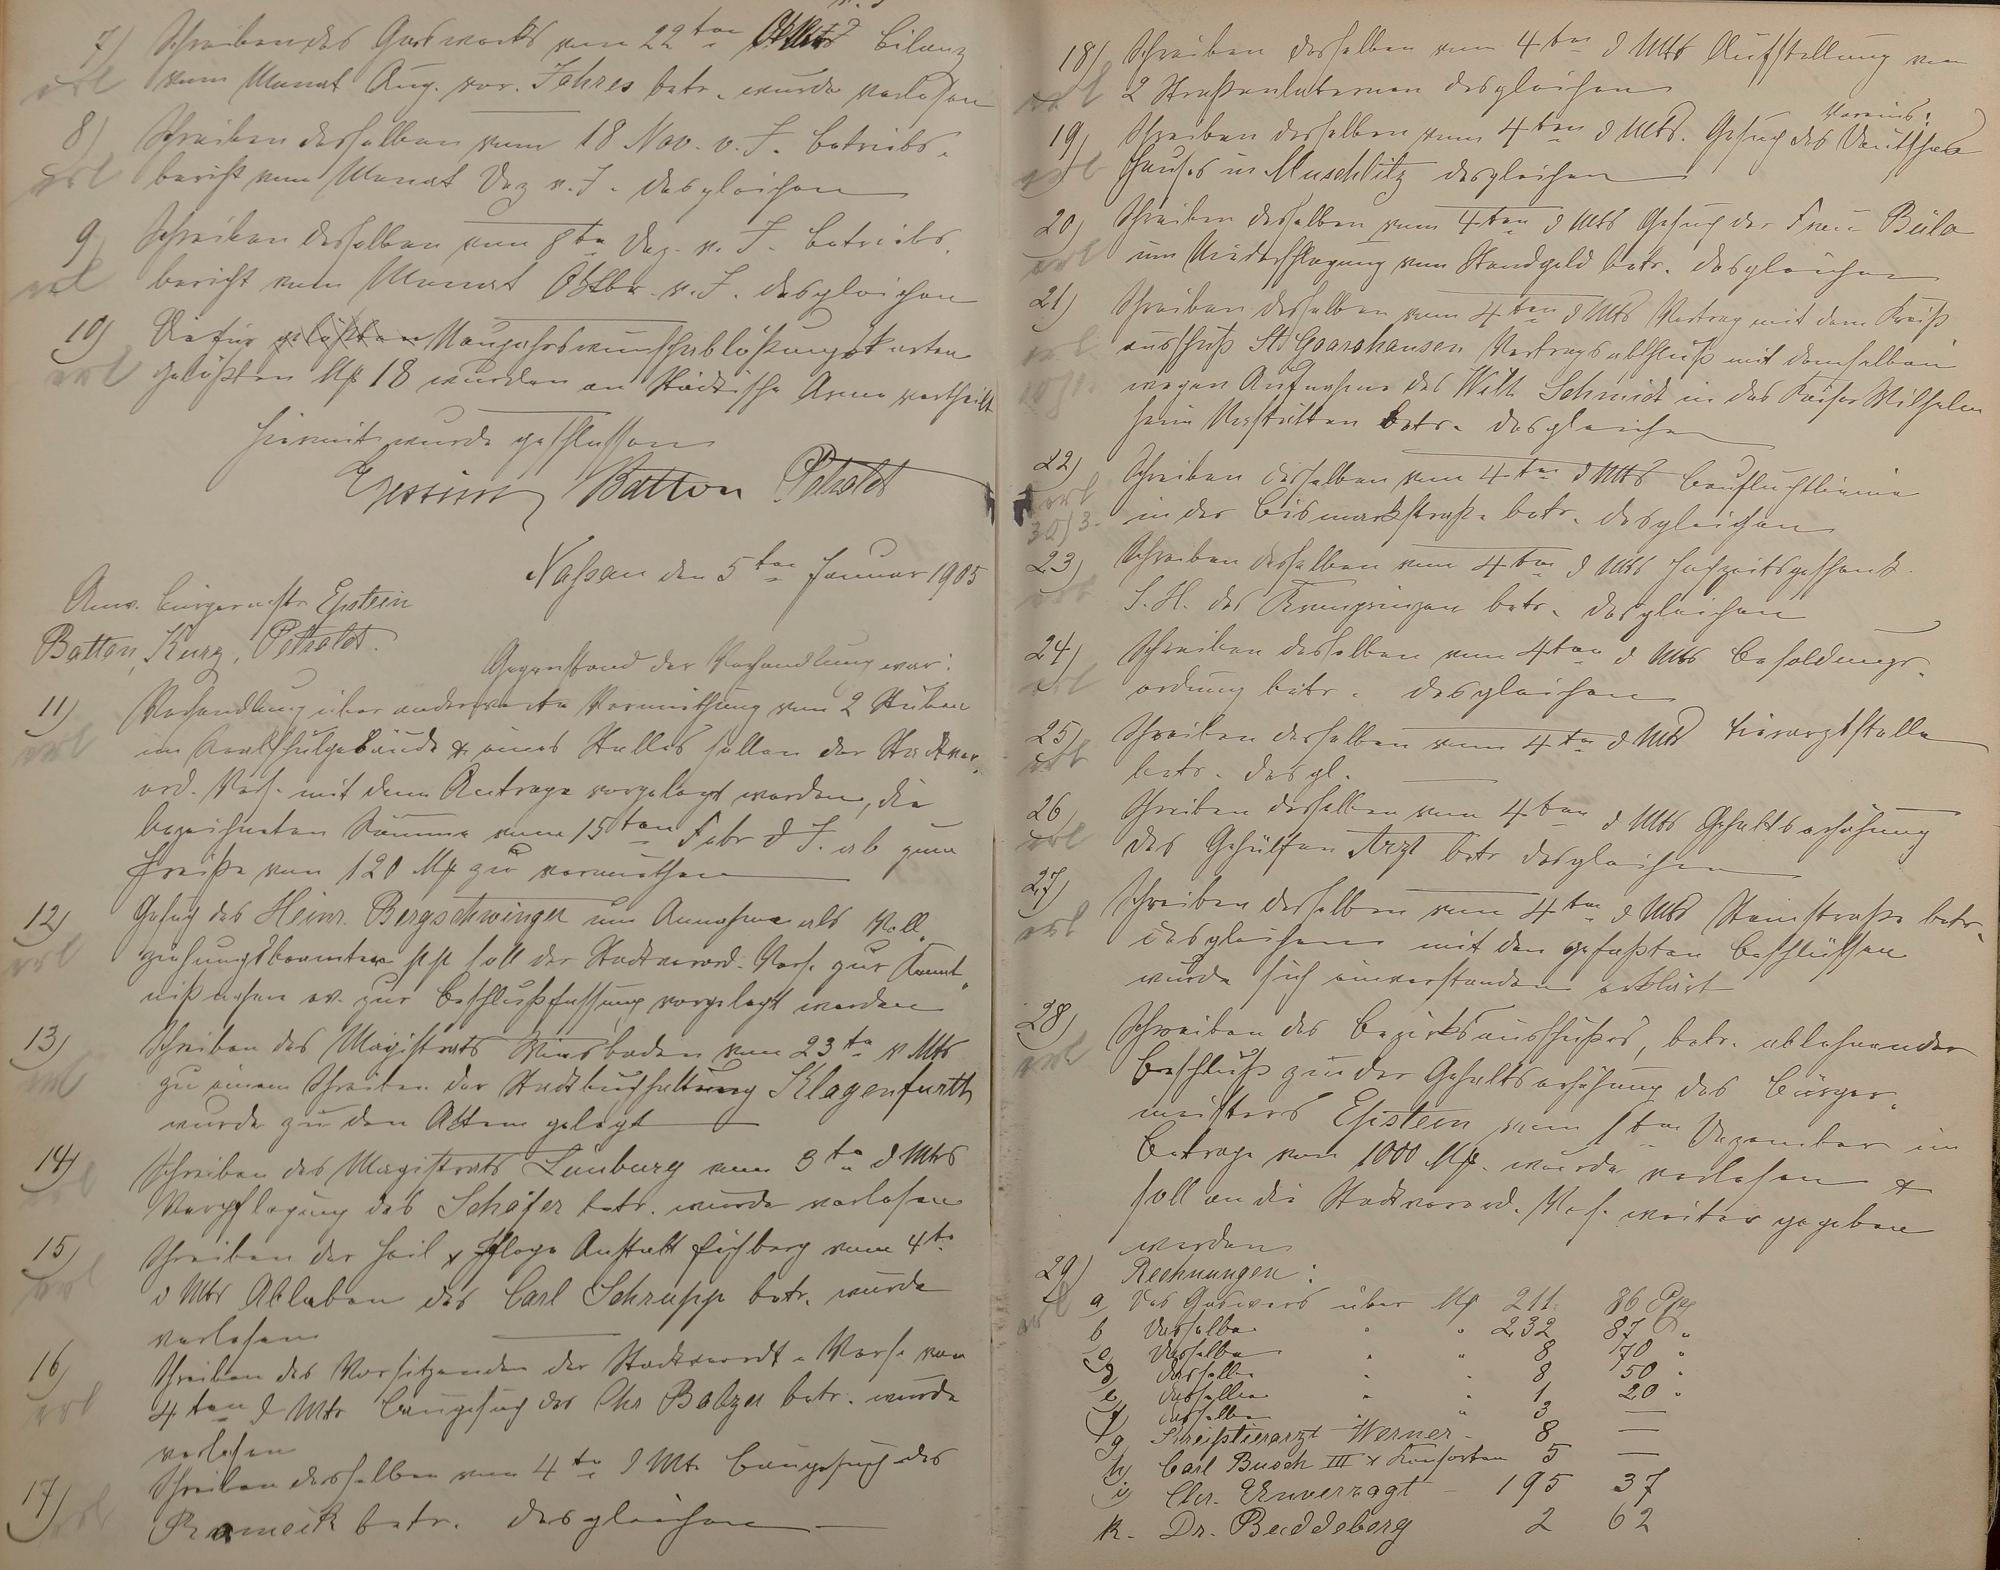 7) Schreiben des Gaswerks vom 22ten v. J. Bilanz
erl vom Monat Aug. vor. Jahres betr. wurde verlesen
8) Schreiben desselben vom 18 Nov. v. J. Betriebs-
erl bericht vom Monat v. J. desgleichen
9) Schreiben desselben vom 8ten Dez. v. J. Betriebs-
erl bericht vom Monat Oktbr. v. J. desgleichen
10) Die für Neujahrswunschablößungskarten
erl gelößten Mk 18 wurden an Städtische Arme vertheilt
Hiermit wurde geschlossen
Batton Petzoldt
Naßau den 5ten Januar 1905
Anw. Bürgermstr. Epstein
Batton, Kurz, Petzoldt.
Gegenstand der Verhandlung war:
11) Verhandlung über anderweite Vermiethung von 2 Stuben
erl im Realschulgebäude & eines Stalles sollen der Stadtver-
ord. Vers. mit dem Antrage vorgelegt werden, die
bezeichneten Räume vom 15ten Febr d J. ab zum
Preiße von 120 Mk zu vermiethen
12) Gesuch des Heinr. Bergschwinger um Annahme als Voll-
erl ziehungsbeamter soll der Stadtverord. Vers. zur Kennt-
nißnahme ev. zur Beschlußfassung vorgelegt werden
13) Schreiben des Magistrats Wiesbaden vom 23ten v Mts
erl zu einem Schreiben der Stadtbuchhaltung Klagenfurth
wurde zu den Akten gelegt
14) Schreiben des Magistrats Limburg vom 3ten d Mts
erl Verpflegung des Schäfer betr. wurde verlesen
15) Schreiben der Heil & Pflege Anstalt Eichberg vom 4ten
erl d Mts Ableben des Carl Schrupp betr. wurde
verlesen
16) Schreiben des Vorsitzenden der Stadtverordt. Vers. von
erl 4ten d Mts Baugesuch des Chr Balzer betr. wurde
verlesen
17) Schreiben desselben vom 4ten d Mts Baugesuch des
erl betr. desgleichen
18) Schreiben desselben vom 4ten d Mts Aufstellung von
erl 2 Straßenlaternen desgleichen
Vereins:
19) Schreiben desselben vom 4ten d Mts. Gesuch des Deutschen
erl Hauses in Muschlitz desgleichen
20) Schreiben desselben vom 4ten d Mts Gesuch der Frau
erl um Niederschlagung von Standgeld betr. desgleichen
21) Schreiben desselben vom 4ten d Mts Vertrag mit dem Kreiß
erl ausschuß St Goarshausen Vertragsabschluß mit demselben
wegen Aufnahme des Wilh Schmidt in das Kaiser Wilhelm
heim betr. desgleichen
22) Schreiben desselben vom 4ten d Mts Baufluchtlinie
erl in der Bismarkstraße betr. desgleichen
30/3.
23) Schreiben desselben vom 4ten d Mts Hochzeitsgeschenk
erl S. H. des Kronprinzen betr. desgleichen
24) Schreiben desselben vom 4ten d Mts Besoldungs-
erl ordnung betr. desgleichen
25) Schreiben desselben vom 4ten d Mts Tierarztstelle
erl betr. desgl.
26) Schreiben desselben vom 4ten d Mts Gehaltserhöhung
erl des Gehülfen Arzt betr desgleichen
27) Schreiben desselben vom 4ten d Mts Steinstraße betr.
erl desgleichen mit den gefaßten Beschlüssen
wurde sich einverstanden erklärt
28) Schreiben des Bezirksausschußes, betr. ablehnender
erl Beschluß zu der Gehaltserhöhung des Bürger-
meisters Epstein vom 1ten Dezember im
Betrage von 1000 Mk. wurde verlesen &
soll an die Stadtverord. Vers. weiter gegeben
werden
29) Rechnungen:
erl a, des Gaswerks über Mk 211. 86 Pfg
b desselben " " 232 87 "
c, desselben " " 8 70 "
d, desselben " " 8 50 "
e, desselben " " 1 20 "
f, desselben " " 3 —
g Kreißtierarzt Werner 8 —
h, Carl Busch III & Konsorten 5 —
i, Chr. Unverzagt 195 37
k. Dr. Buddeberg 2 62